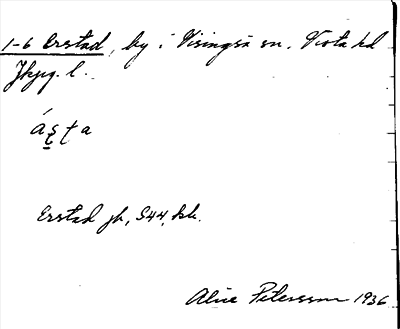 1-6 Erstad, by i Visingsö sn. Vista hd
Jkpg. l.
ás̱ṭa
Erstad jb, S44, bb.
Alice Petersson 1936